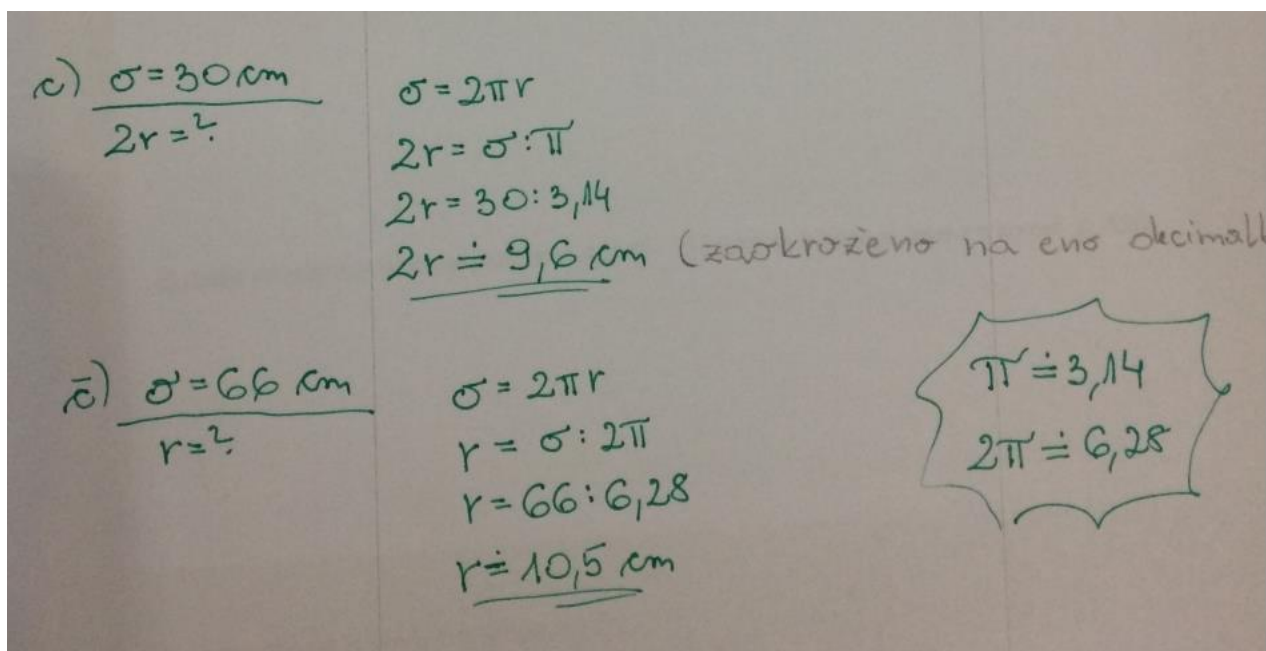 c) σ = 30 cm
2r = ?
σ = 2πr
2r = σ : π
2r = 30 : 3,14
2r ≐ 9,6 cm (zaokroženo na eno
č) σ = 66 cm
r = ?
σ = 2πr
r = σ : 2π
r = 66 : 6,28
r ≐ 10,5 cm
π ≐ 3,14
2π ≐ 6,28